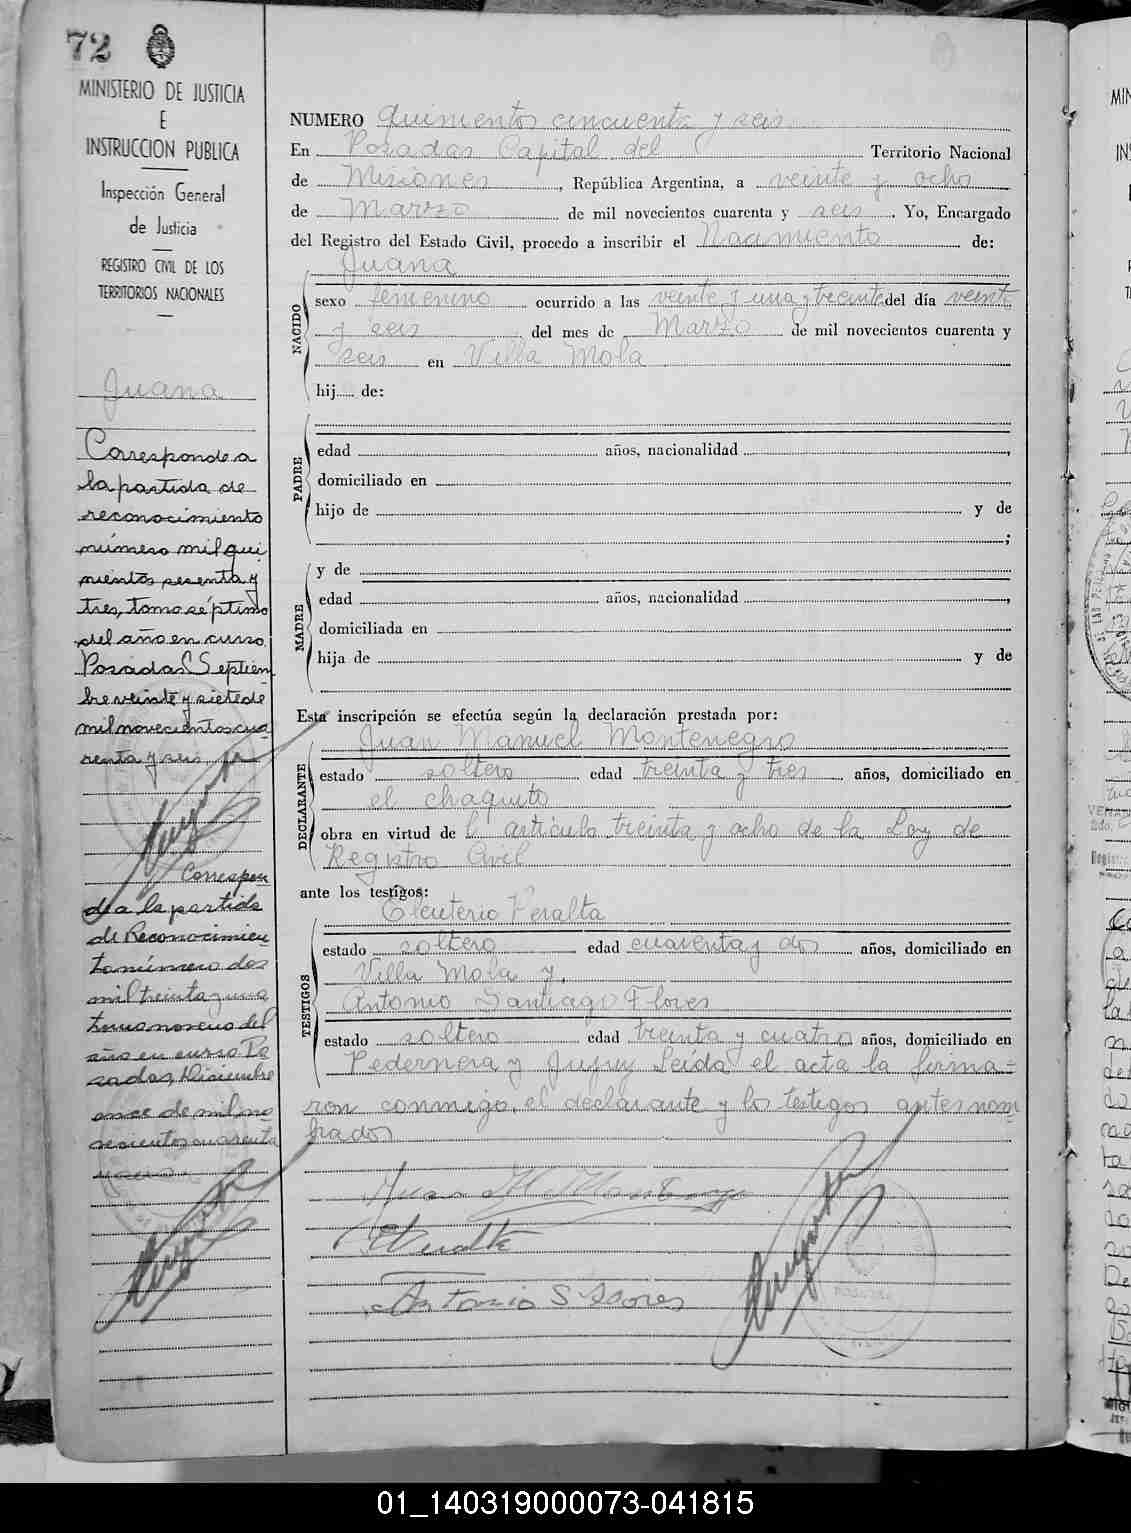 72
MINISTERIO DE JUSTICIA
E
INSTRUCCION PUBLICA
Inspección General
de Justicia
REGISTRO CIVIL DE LOS
TERRITORIOS NACIONALES
Juana
Corresponde a
la partida de
reconocimiento
número mil qui
nientos sesenta y
tres, tomo séptimo
del año en curso.
Posadas Septiem
bre veinte y siete de
mil novecientos cua
renta y seis.
Correspon
de a la partida
de Reconocimien
to número dos
mil treinta y uno
tomo noveno del
año en curso Po
sadas, Diciembre
once de mil no
vecientos cuarenta
y seis.
NUMERO Quinientos cincuenta y seis
En Posadas Capital del Territorio Nacional
de Misiones, República Argentina, a veinte y ocho
de Marzo de mil novecientos cuarenta y seis. Yo, Encargado
del Registro del Estado Civil, procedo a inscribir el Nacimiento de:
Juana
NACIDO
sexo femenino ocurrido a las veinte y una y treinta del día veinte
y seis del mes de Marzo de mil novecientos cuarenta y
seis en Villa Mola
hij de:
PADRE
edad años, nacionalidad ,
domiciliado en
hijo de y de
;
MADRE
y de
edad años, nacionalidad ,
domiciliada en
hija de y de
Esta inscripción se efectúa según la declaración prestada por:
DECLARANTE
Juan Manuel Montenegro
estado soltero edad treinta y tres años, domiciliado en
el chaquito
obra en virtud de l artículo treinta y ocho de la Ley de
Registro Civil
ante los testigos:
TESTIGOS
Eleuterio Peralta
estado soltero edad cuarenta y dos años, domiciliado en
Villa Mola y,
Antonio Santiago Flores
estado soltero edad treinta y cuatro años, domiciliado en
Pedernera y Jujuy Leída el acta la firma=
ron conmigo, el declarante y los testigos antes nom
brados
Juan M. Montenegro
E Peralta
Antonio S Flores
01_140319000073-041815